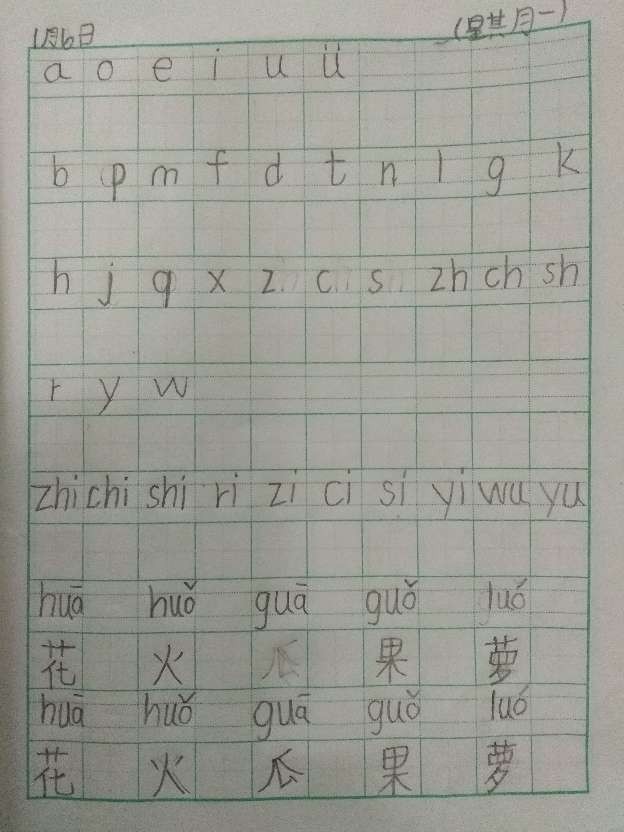 1月6日 (星其月一)
a o e i u ü
b p m f d t n l g k
h j q x z c s zh ch sh
r y w
zhi chi shi ri zi ci si yi wu yu
huā huǒ guā guǒ luó
花 火 瓜 果 萝
huā huǒ guā guǒ luó
花 火 瓜 果 萝